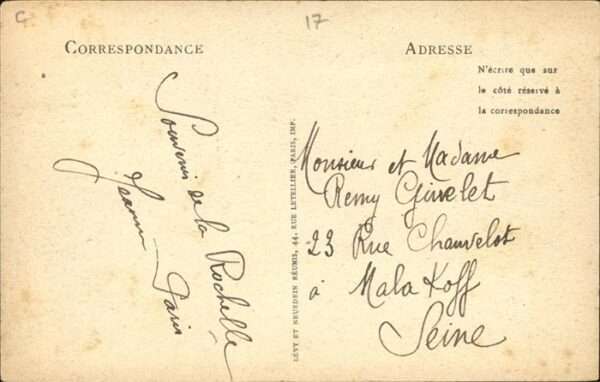 C
17
CORRESPONDANCE
ADRESSE
N'écrire que sur
le côté réservé à
la correspondance
Souvenir de la Rochelle
Paris
LÉVY ET NEURDEIN RÉUNIS, 44, RUE LETELLIER, PARIS, IMP.
Monsieur et Madame
Remy Givelet
23 Rue Chauvelot
à Malakoff
Seine